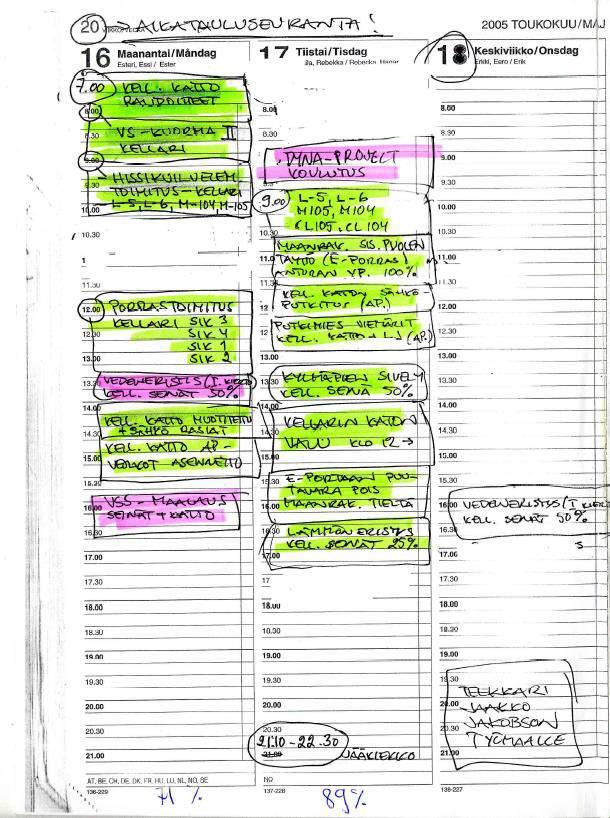 20 VIIKKO
AIKATAULUSEURANTA!
2005 TOUKOKUU/MAJ
16 Maanantai/Måndag
Esteri, Essi / Ester
7.00 KELL. KATTO
RAUDOITTEET
8.00
8.30 VS-KUORMA II
KELLARI
9.00
9.30 HISSIKUILUELEM.
TOIMITUS-KELLARI
10.00 L-5, L-6, M-104, M-105
10.30
1
11.30
12.00 PORRASTOIMITUS
KELLARI SIK 3
12.30 SIK 4
SIK 1
13.00 SIK 2
13.30 VEDENERISTYS (I. KIERR
KELL. SEINÄT 50%
14.00
KELL. KATTO MUOTITETTU
14.30 + SÄHKÖ RASIAT
KELL. KATTO AP-
15.00 VERKOT ASENNETTU
15.30
16.00 VSS-MAALAUS
SEINÄT + KATTO
16.30
17.00
17.30
18.00
18.30
19.00
19.30
20.00
20.30
21.00
AT, BE, CH, DE, DK, FR, HU, LU, NL, NO, SE
136-229
71 %
17 Tiistai/Tisdag
Ila, Rebekka / Rebecka
8.00
8.30
DYNA-PROJECT
KOULUTUS
9.00 L-5, L-6
M105, M104
CL105, CL104
10.30 MAANRAK. SIS. PUOLEN
11.0 TÄYTTÖ (E-PORRAS)
ANTURAN YP. 100%
11.30
KELL. KATON SÄHKÖ
12.00 PUTKITUS (AP.)
PUTKIMIES VIETÄRIT
KELL. KATTO + LJ (AP.)
13.00
13.30 KYLMÄPIEN SIVELY
KELL. SEINÄ 50%
14.00
KELLARIN KATON
14.30
VALU KLO 12 →
15.00
15.30 E-PORTAAN PUU-
TAVARA POIS
16.00 MAANRAK. TIELTÄ
16.30 LÄMMÖNERISTYS
KELL. SEINÄT 25%
17.00
17
18.00
18.30
19.00
19.30
20.00
20.30
21.10-22.30
21.00 JÄÄKIEKKO
NO
137-228
89%
18 Keskiviikko/Onsdag
Erkki, Eero / Erik
8.00
8.30
9.00
9.30
10.00
10.30
11.00
11.30
12.00
12.30
13.00
13.30
14.00
14.30
15.00
15.30
16.00 VEDENERISTYS (I KIERR
KELL. SEINÄT 50%
16.30
17.00 S
17.30
18.00
18.30
19.00
19.30
TELKKARI
20.00 JAAKKO
JAKOBSON
20.30 TYÖMAALLE
21.00
138-227